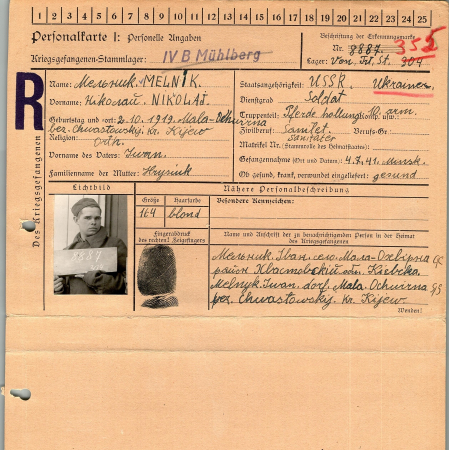 1 2 3 4 5 6 7 8 9 10 11 12 13 14 15 16 17 18 19 20 21 22 23 24 25
Personalkarte I: Personelle Angaben
Beschriftung der Erkennungsmarke
Nr. 8887. 355
Kriegsgefangenen-Stammlager: IV B Mühlberg
Lager: Von Fr. St. 304
R
Des Kriegsgefangenen
Name: Мельник. MELNIK.
Vorname: Николай NIKOLAJ.
Geburtstag und -ort: 2.10.1919. Mala-
bez. Chwastowskij. Kr. Kijew
Religion: orth.
Vorname des Vaters: Iwan.
Familienname der Mutter:
Staatsangehörigkeit: USSR. Ukrainer
Dienstgrad: Soldat
Truppenteil: Komp. usw.: 10. arm.
Zivilberuf: Berufs-Gr.:
Sanitäter
Matrikel Nr. (Stammrolle des Heimatstaates):
Gefangennahme (Ort und Datum): 4.7.41. Minsk.
Ob gesund, krank, verwundet eingeliefert: gesund
Lichtbild
Nähere Personalbeschreibung
Größe
Haarfarbe
Besondere Kennzeichen:
164
blond
Fingerabdruck
des rechten! Zeigefingers
Name und Anschrift der zu benachrichtigenden Person in der Heimat
des Kriegsgefangenen
8887
Мельник. Іван. село. Мала-
район Хвастовский обл. Киевска.
Melnyk. Iwan. dorf. Mala.
bez. Chwastowskij. Kr. Kijew
Wenden!